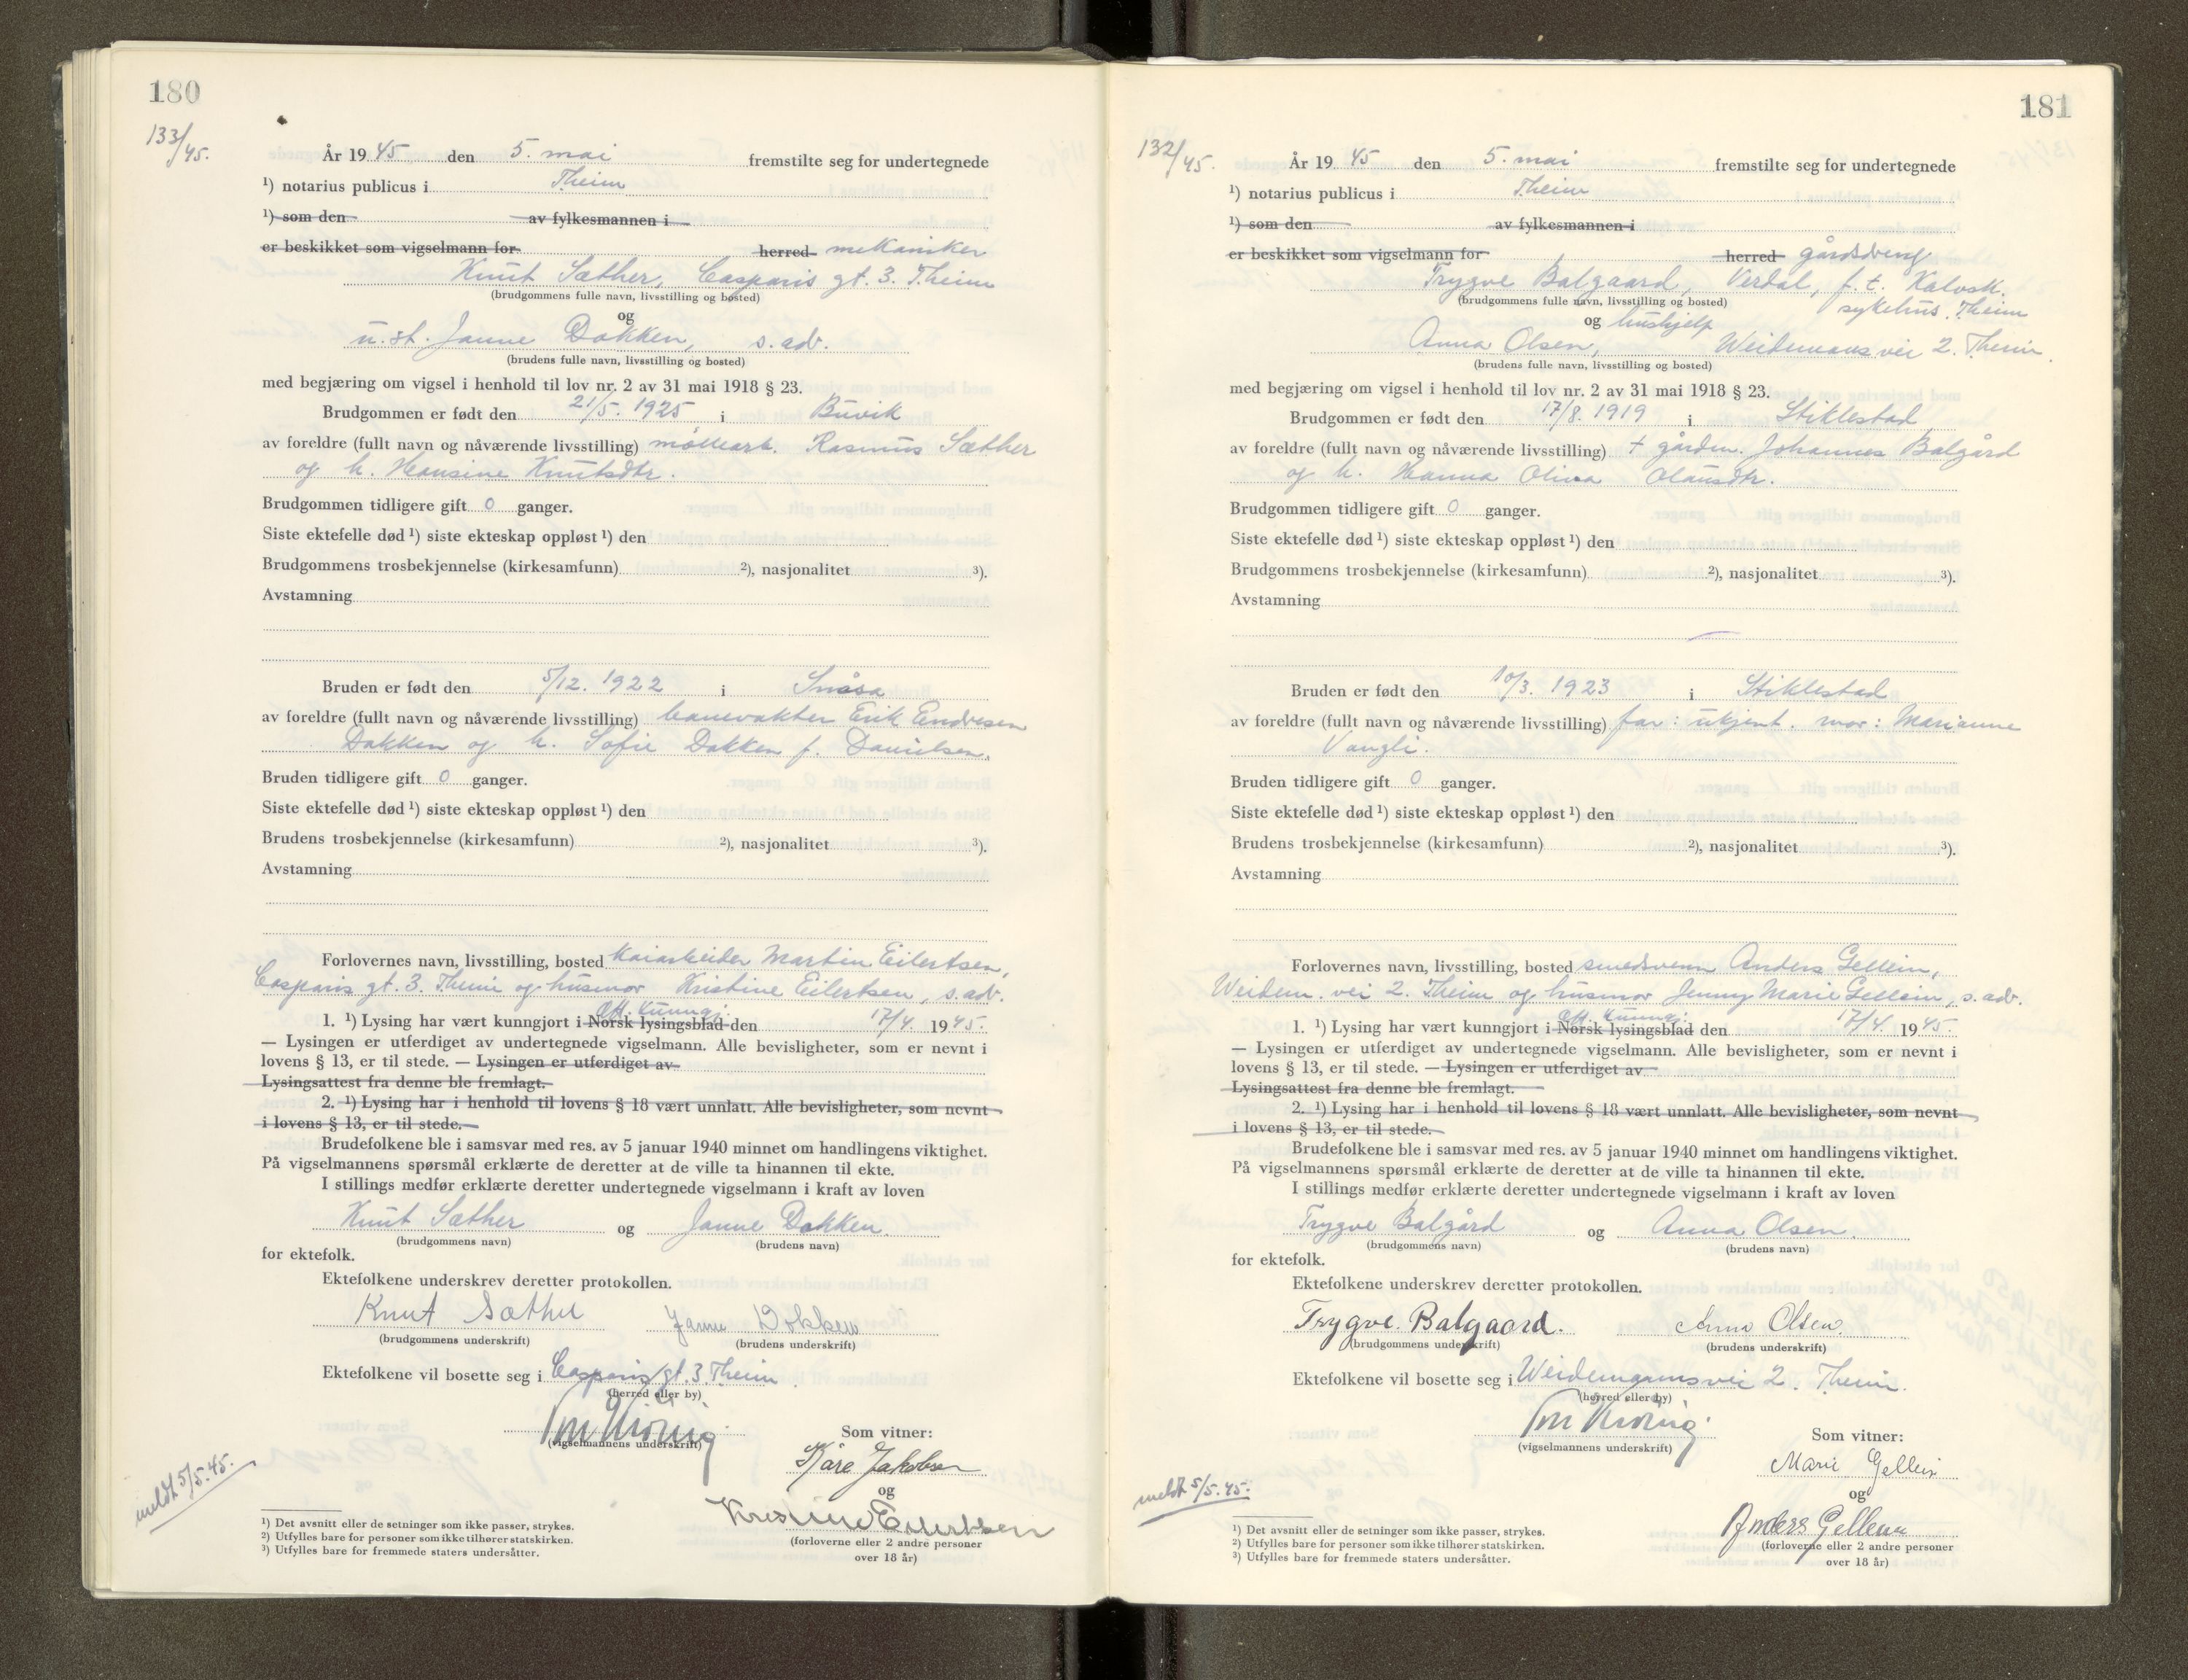 180
133/45.
År 1945 den 5. mai fremstilte seg for undertegnede
¹) notarius publicus i Theim
¹) som den av fylkesmannen i
er beskikket som vigselmann for herred mekaniker
Knut Sæther, Casparis gt. 3. Theim
(brudgommens fulle navn, livsstilling og bosted)
og
u.st. Janne Dokken, s. adr.
(brudens fulle navn, livsstilling og bosted)
med begjæring om vigsel i henhold til lov nr. 2 av 31 mai 1918 § 23.
Brudgommen er født den 21/5. 1925 i Buvik
av foreldre (fullt navn og nåværende livsstilling) møllearb. Rasmus Sæther
og h. Hansine Knutsdtr.
Brudgommen tidligere gift 0 ganger.
Siste ektefelle død ¹) siste ekteskap oppløst ¹) den
Brudgommens trosbekjennelse (kirkesamfunn) ²), nasjonalitet ³).
Avstamning
Bruden er født den 5/12. 1922 i Snåsa
av foreldre (fullt navn og nåværende livsstilling) banevakter Erik Endresen
Dokken og h. Sofie Dokken f. Danielsen.
Bruden tidligere gift 0 ganger.
Siste ektefelle død ¹) siste ekteskap oppløst ¹) den
Brudens trosbekjennelse (kirkesamfunn) ²), nasjonalitet ³).
Avstamning
Forlovernes navn, livsstilling, bosted kaiarbeider Martin Eilertsen,
Casparis gt. 3. Theim og husmor Kristine Eilertsen, s. adr.
Off. kunngj.
1. ¹) Lysing har vært kunngjort i Norsk lysingsblad den 17/4. 1945.
— Lysingen er utferdiget av undertegnede vigselmann. Alle bevisligheter, som er nevnt i
lovens § 13, er til stede. — Lysingen er utferdiget av
Lysingsattest fra denne ble fremlagt.
2. ¹) Lysing har i henhold til lovens § 18 vært unnlatt. Alle bevisligheter, som nevnt
i lovens § 13, er til stede.
Brudefolkene ble i samsvar med res. av 5 januar 1940 minnet om handlingens viktighet.
På vigselmannens spørsmål erklærte de deretter at de ville ta hinannen til ekte.
I stillings medfør erklærte deretter undertegnede vigselmann i kraft av loven
Knut Sæther og Janne Dokken.
(brudgommens navn) (brudens navn)
for ektefolk.
Ektefolkene underskrev deretter protokollen.
Knut Sæther Janne Dokken
(brudgommens underskrift) (brudens underskrift)
Ektefolkene vil bosette seg i Casparis gt. 3. Theim.
(herred eller by)
(vigselmannens underskrift)
Som vitner:
Kåre Jakobsen
og
Kristine Eilertsen
(forloverne eller 2 andre personer
over 18 år)
meldt 5/5.45.
¹) Det avsnitt eller de setninger som ikke passer, strykes.
²) Utfylles bare for personer som ikke tilhører statskirken.
³) Utfylles bare for fremmede staters undersåtter.
181
132/45.
År 1945 den 5. mai fremstilte seg for undertegnede
¹) notarius publicus i Theim
¹) som den av fylkesmannen i
er beskikket som vigselmann for herred gårdsdreng
Trygve Balgaard, Verdal, f.t. Kalvsk.
(brudgommens fulle navn, livsstilling og bosted) sykehus. Theim
og hushjelp
Anna Olsen, Weidemans vei 2. Theim.
(brudens fulle navn, livsstilling og bosted)
med begjæring om vigsel i henhold til lov nr. 2 av 31 mai 1918 § 23.
Brudgommen er født den 17/8. 1919 i Stiklestad
av foreldre (fullt navn og nåværende livsstilling) + gårdm. Johannes Balgård
og h. Hanna Oliva Olausdtr.
Brudgommen tidligere gift 0 ganger.
Siste ektefelle død ¹) siste ekteskap oppløst ¹) den
Brudgommens trosbekjennelse (kirkesamfunn) ²), nasjonalitet ³).
Avstamning
Bruden er født den 10/3. 1923 i Stiklestad
av foreldre (fullt navn og nåværende livsstilling) far: ukjent. mor: Marianne
Vangli.
Bruden tidligere gift 0 ganger.
Siste ektefelle død ¹) siste ekteskap oppløst ¹) den
Brudens trosbekjennelse (kirkesamfunn) ²), nasjonalitet ³).
Avstamning
Forlovernes navn, livsstilling, bosted smedsvenn Anders Gellein,
Weidem. vei 2. Theim og husmor Jenny Marie Gellein, s. adr.
Off. kunngj.
1. ¹) Lysing har vært kunngjort i Norsk lysingsblad den 17/4. 1945.
— Lysingen er utferdiget av undertegnede vigselmann. Alle bevisligheter, som er nevnt i
lovens § 13, er til stede. — Lysingen er utferdiget av
Lysingsattest fra denne ble fremlagt.
2. ¹) Lysing har i henhold til lovens § 18 vært unnlatt. Alle bevisligheter, som nevnt
i lovens § 13, er til stede.
Brudefolkene ble i samsvar med res. av 5 januar 1940 minnet om handlingens viktighet.
På vigselmannens spørsmål erklærte de deretter at de ville ta hinannen til ekte.
I stillings medfør erklærte deretter undertegnede vigselmann i kraft av loven
Trygve Balgård og Anna Olsen.
(brudgommens navn) (brudens navn)
for ektefolk.
Ektefolkene underskrev deretter protokollen.
Trygve. Balgaard. Anna Olsen.
(brudgommens underskrift) (brudens underskrift)
Ektefolkene vil bosette seg i Weidemans vei 2. Theim.
(herred eller by)
(vigselmannens underskrift)
Som vitner:
Marie Gellein
og
Anders Gellein
(forloverne eller 2 andre personer
over 18 år)
meldt 5/5.45.
¹) Det avsnitt eller de setninger som ikke passer, strykes.
²) Utfylles bare for personer som ikke tilhører statskirken.
³) Utfylles bare for fremmede staters undersåtter.